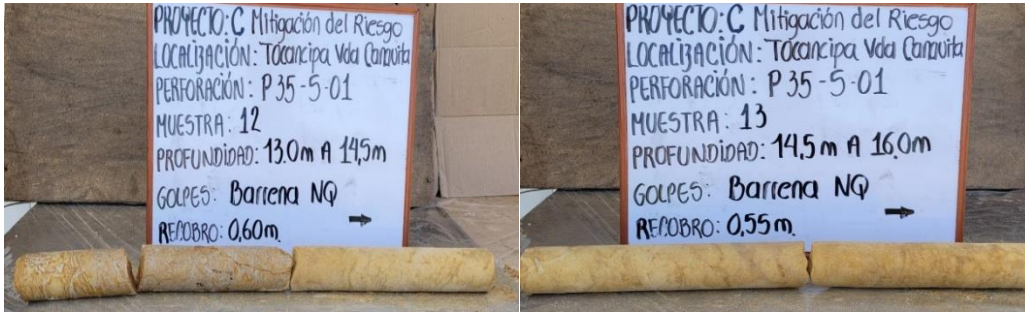 PROYECTO: C Mitigación del Riesgo
LOCALIZACIÓN: Tocancipa Vda Canavita
PERFORACIÓN: P 35-5-01
MUESTRA: 12
PROFUNDIDAD: 13.0m A 14,5m
GOLPES: Barrena NQ
RECOBRO: 0,60m.
PROYECTO: C Mitigación del Riesgo
LOCALIZACIÓN: Tocancipa Vda Canavita
PERFORACIÓN: P 35-5-01
MUESTRA: 13
PROFUNDIDAD: 14,5m A 16.0m
GOLPES: Barrena NQ
RECOBRO: 0,55m.